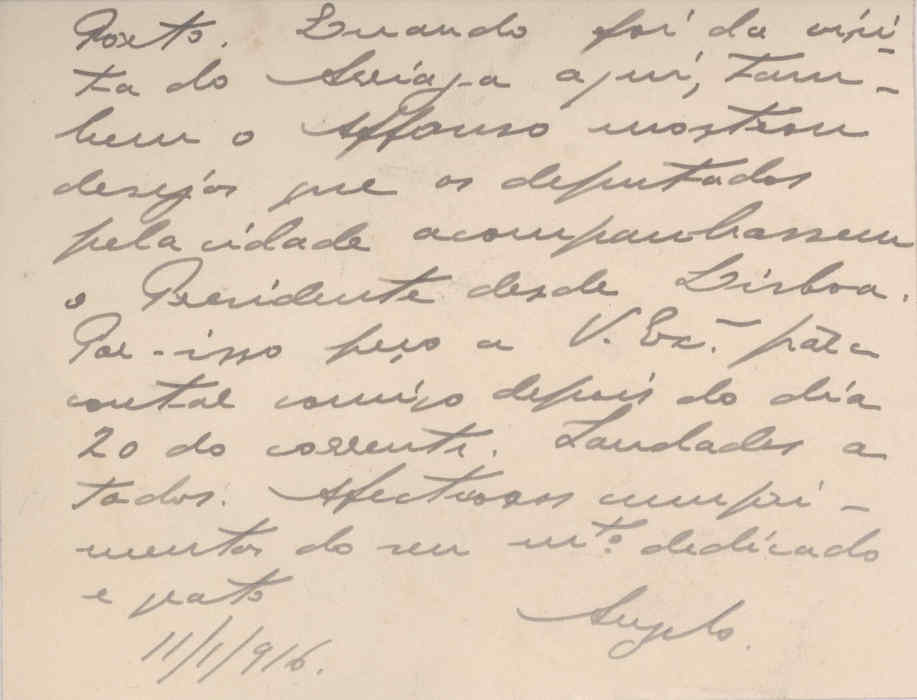 Porto. Quando foi da visi-
ta do Arriaga aqui, tam-
bem o Affonso mostrou
desejos que os deputados
pela cidade acompanhassem
o Presidente desde Lisboa.
Por-isso peço a V. Exª. para
contar comigo depois do dia
20 do corrente. Saudades a
todos. Afectuosos cumpri-
mentos do seu mtº. dedicado
e grato
Angelo.
11/1/916.